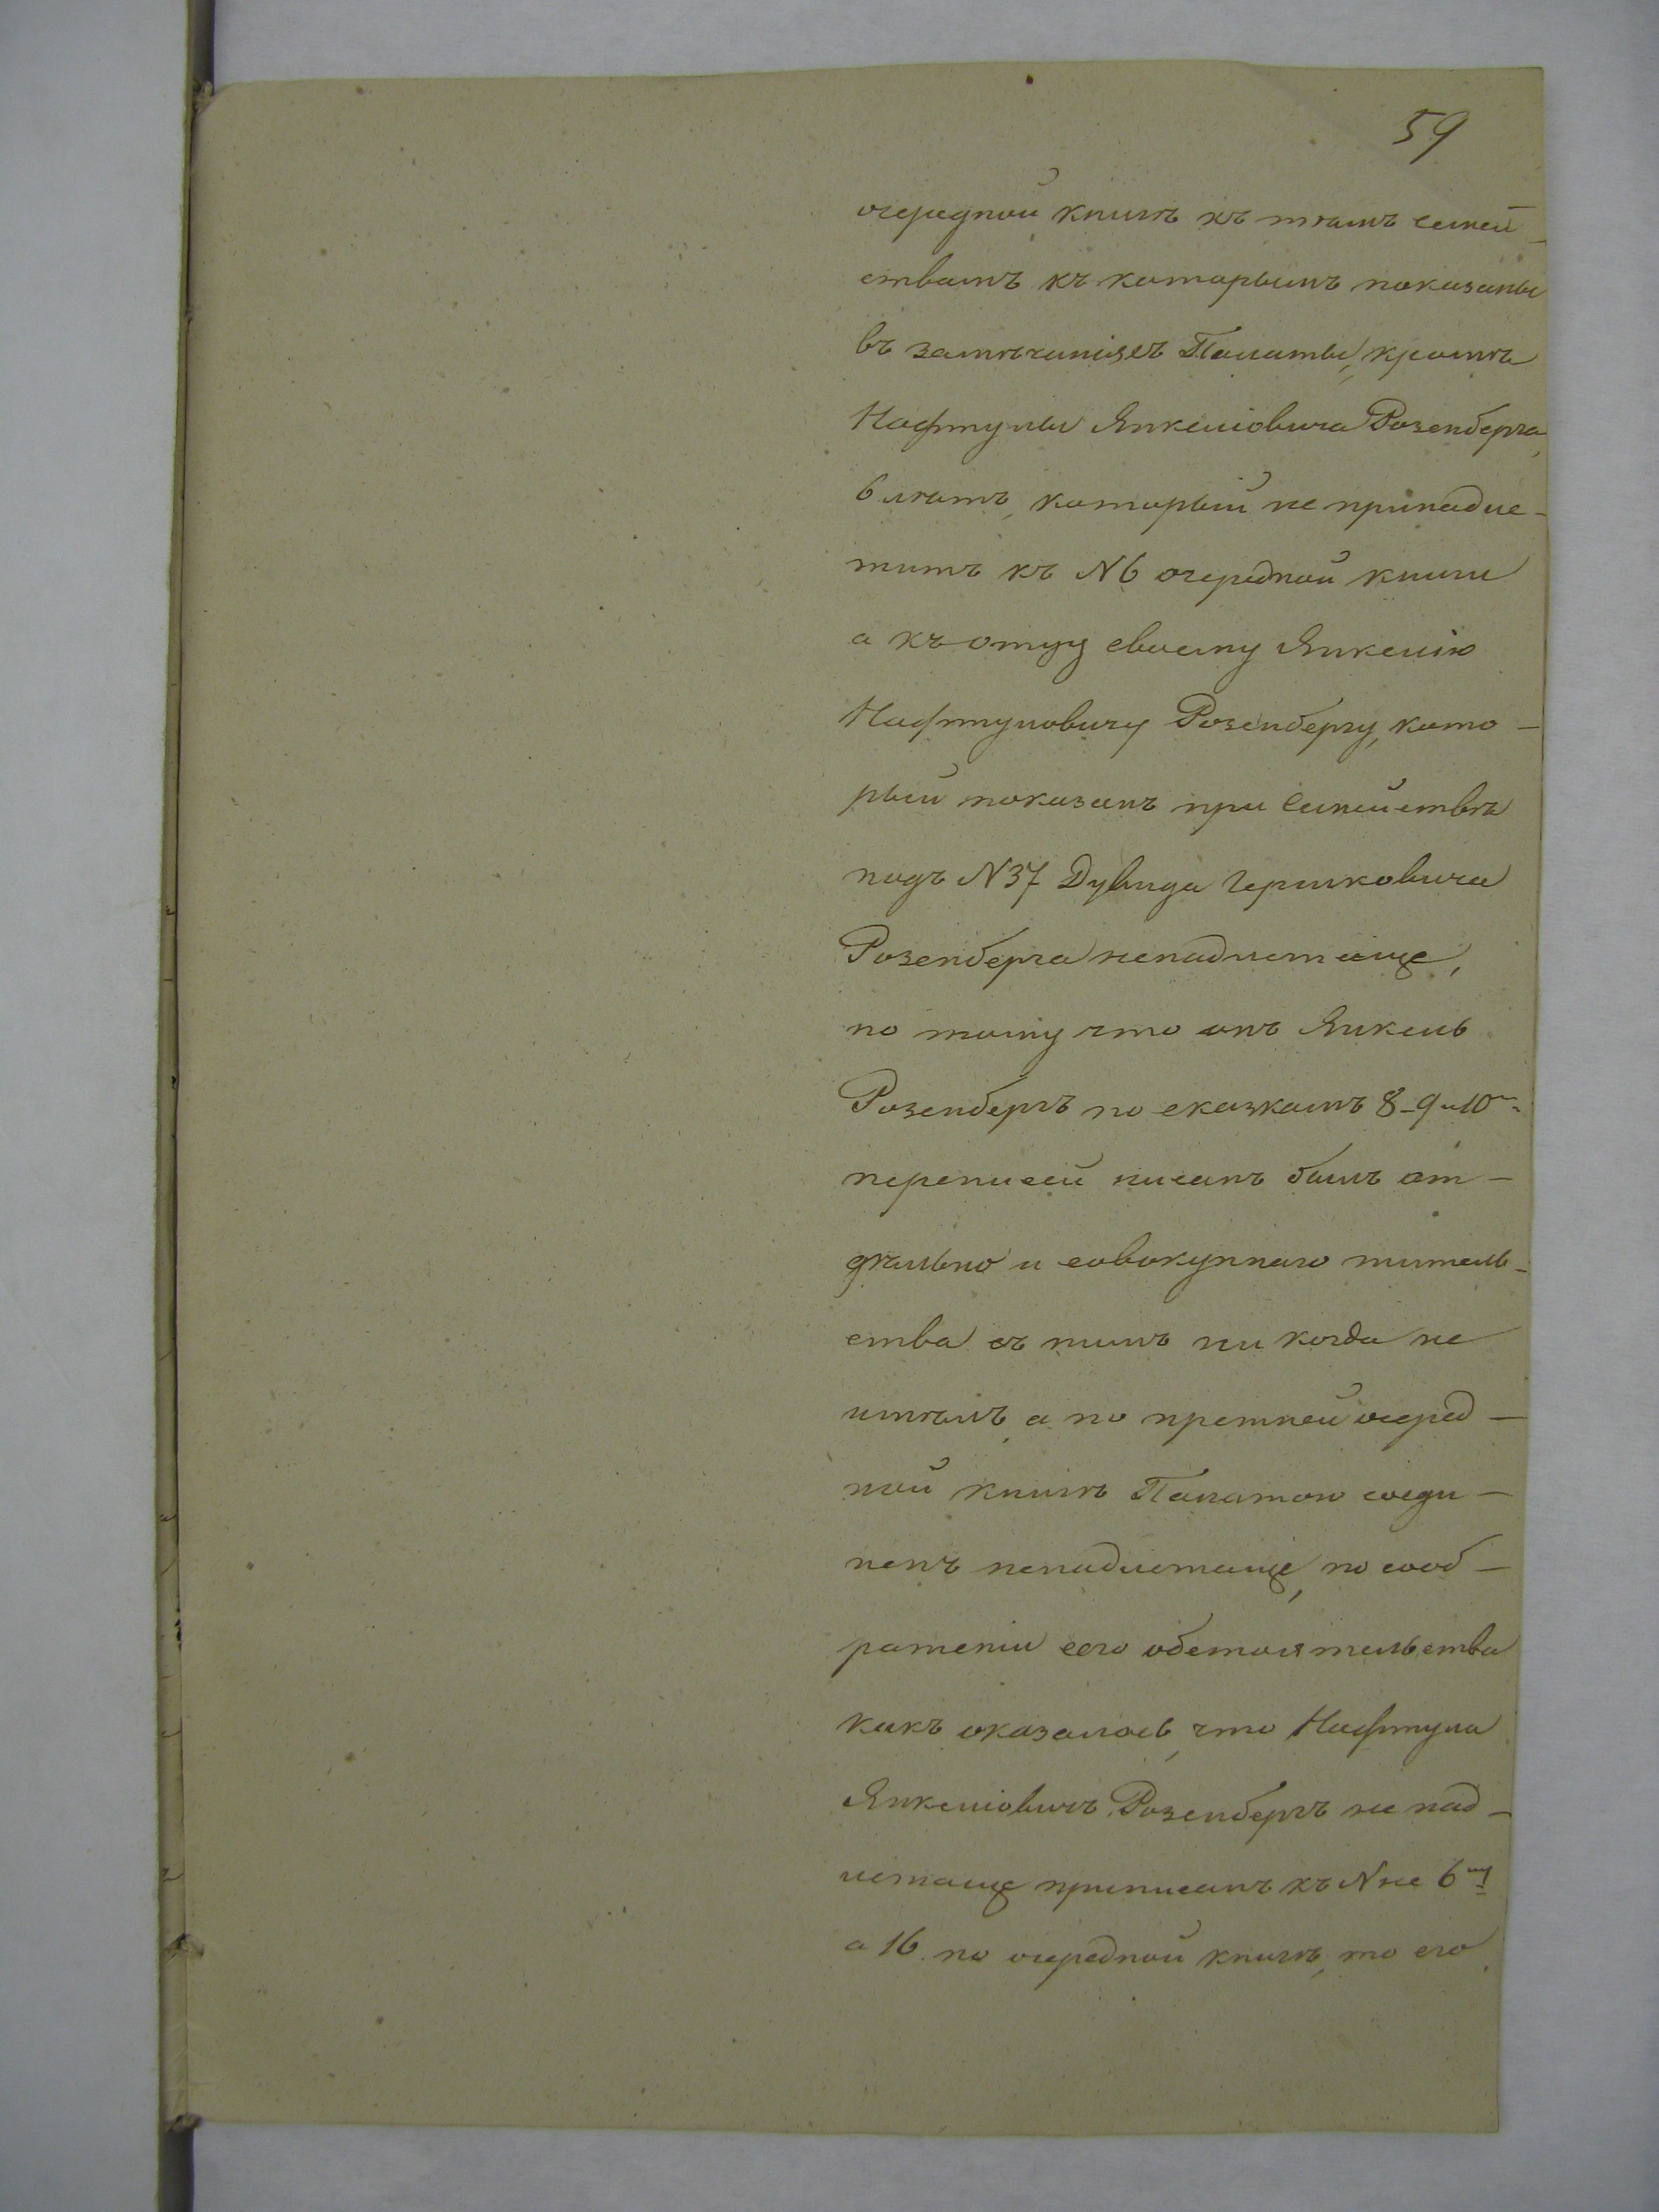 59
очередной книгѣ къ тѣмъ семей-
ствамъ къ которымъ показаны
въ замѣчаніяхъ Палаты, кромѣ
Нафтулы Янкеліовича Розенберга,
6 лѣтъ, который не принадле-
житъ къ N 6 очередной книги
а къ отцу своему Янкелію
Нафтуловичу Розенбергу, кото-
рый показанъ при Семействѣ
подъ N 37 Дувида Гершковича
Розенберга ненадлежаще,
по тому что онъ Янкель
Розенбергъ по сказкамъ 8-9 и 10й
переписей писанъ былъ от-
дѣльно и совокупнаго житель-
ства съ нимъ ни когда не
имѣлъ, а по прежней очеред-
ной книгѣ Палатою соеди-
ненъ ненадлежаще, по сооб-
раженіи сего обстоятельства
какъ оказалось, что Нафтула
Янкеліовичъ Розенбергъ не над-
лежаще приписанъ къ N не 6му
а 16 по очередной книгѣ, то его